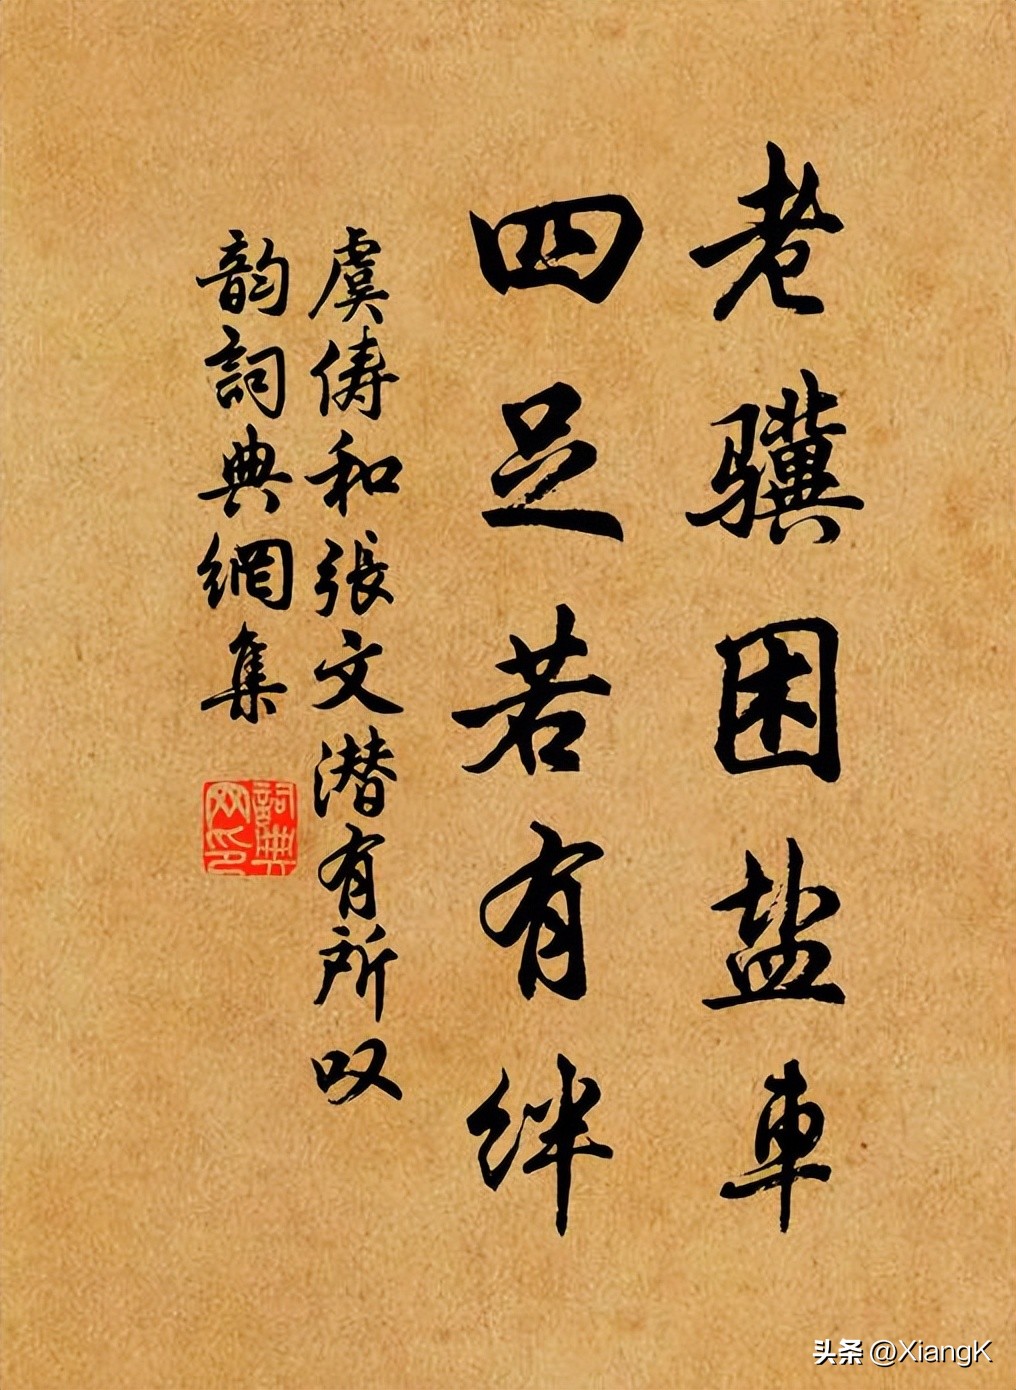 老骥困盐車
四足若有绊
虞俦和張文潜有所叹
韵詞典網集
詞典
网印
头条 @XiangK